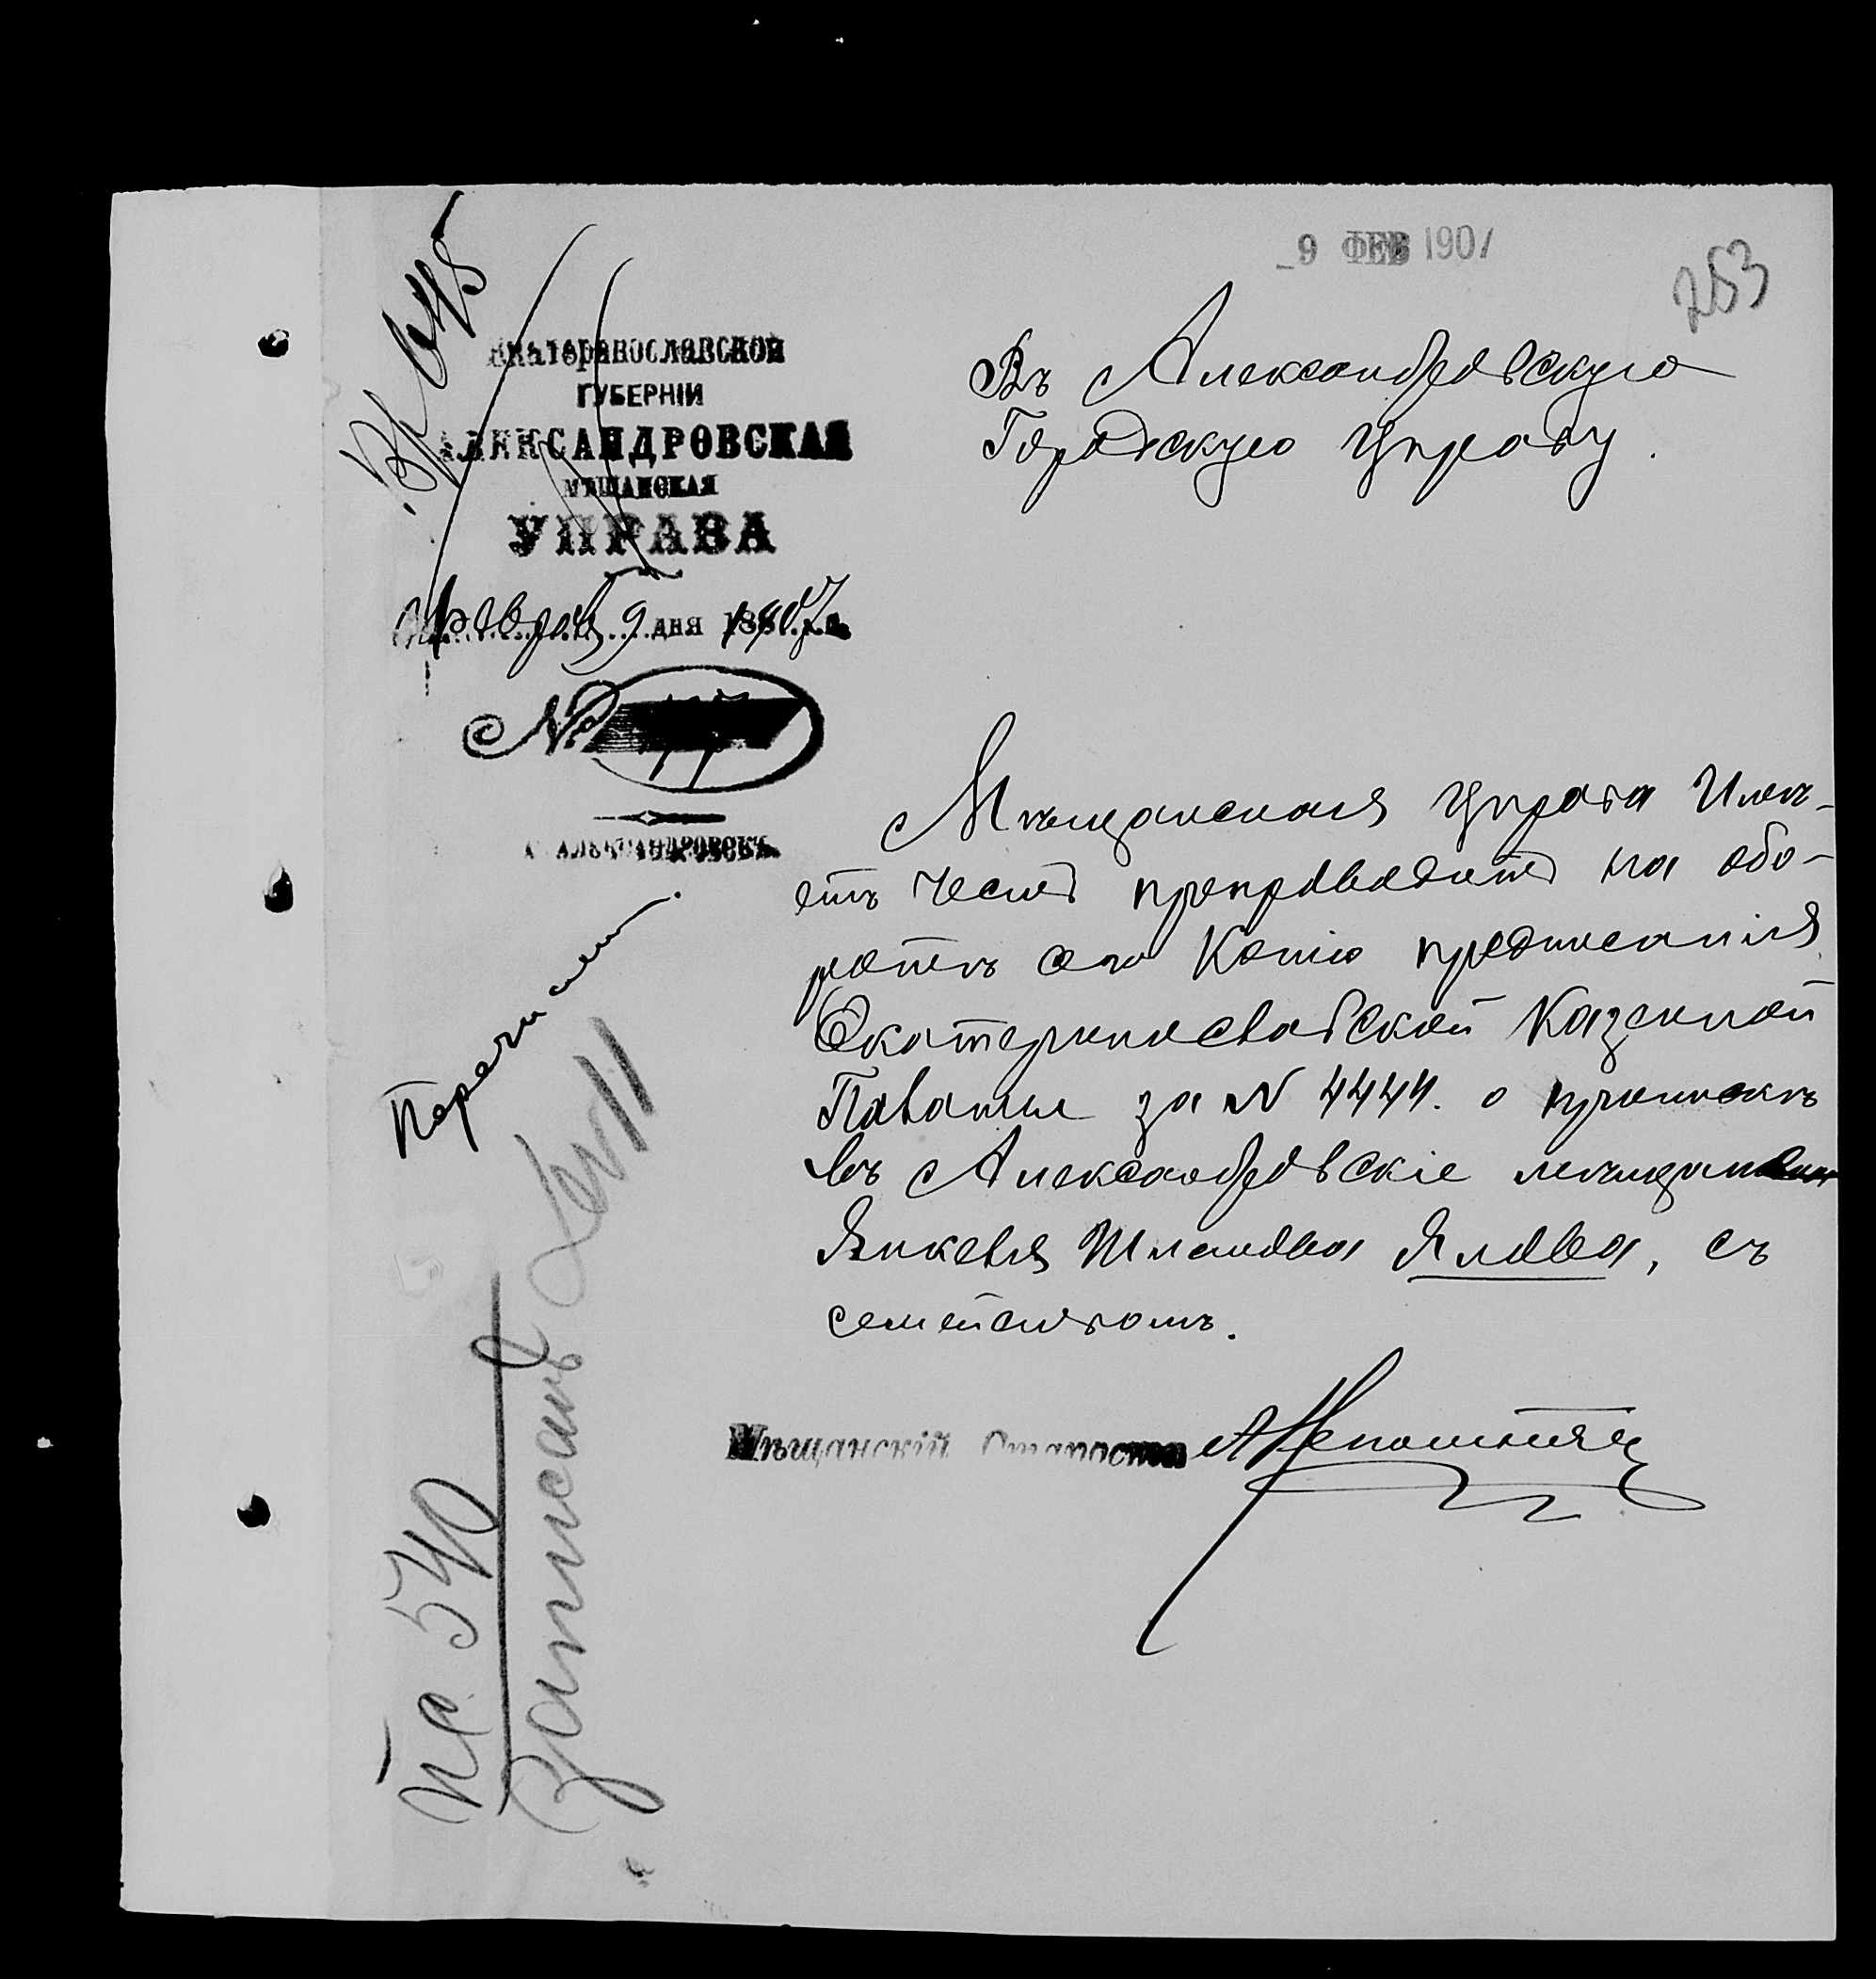 9 ФЕВ 1901
253
Екатеринославской
ГУБЕРНІИ
АЛЕКСАНДРОВСКАЯ
МѢЩАНСКАЯ
УПРАВА
Февраля 9 дня 1901 г.
№
Г. АЛЕКСАНДРОВСКЪ
Въ Александровскую
Городскую Управу.
Мѣщанская Управа имѣ-
етъ честь препроводить на обо-
ротѣ сего копію предписанія
Екатеринославской Казенной
Палаты за № 4444. о припискѣ
въ Александровскіе мѣщане
Янкеля Шлемова Ялова, съ
семействомъ.
Мѣщанскій Староста
Перечислен
№ 540
Записанъ